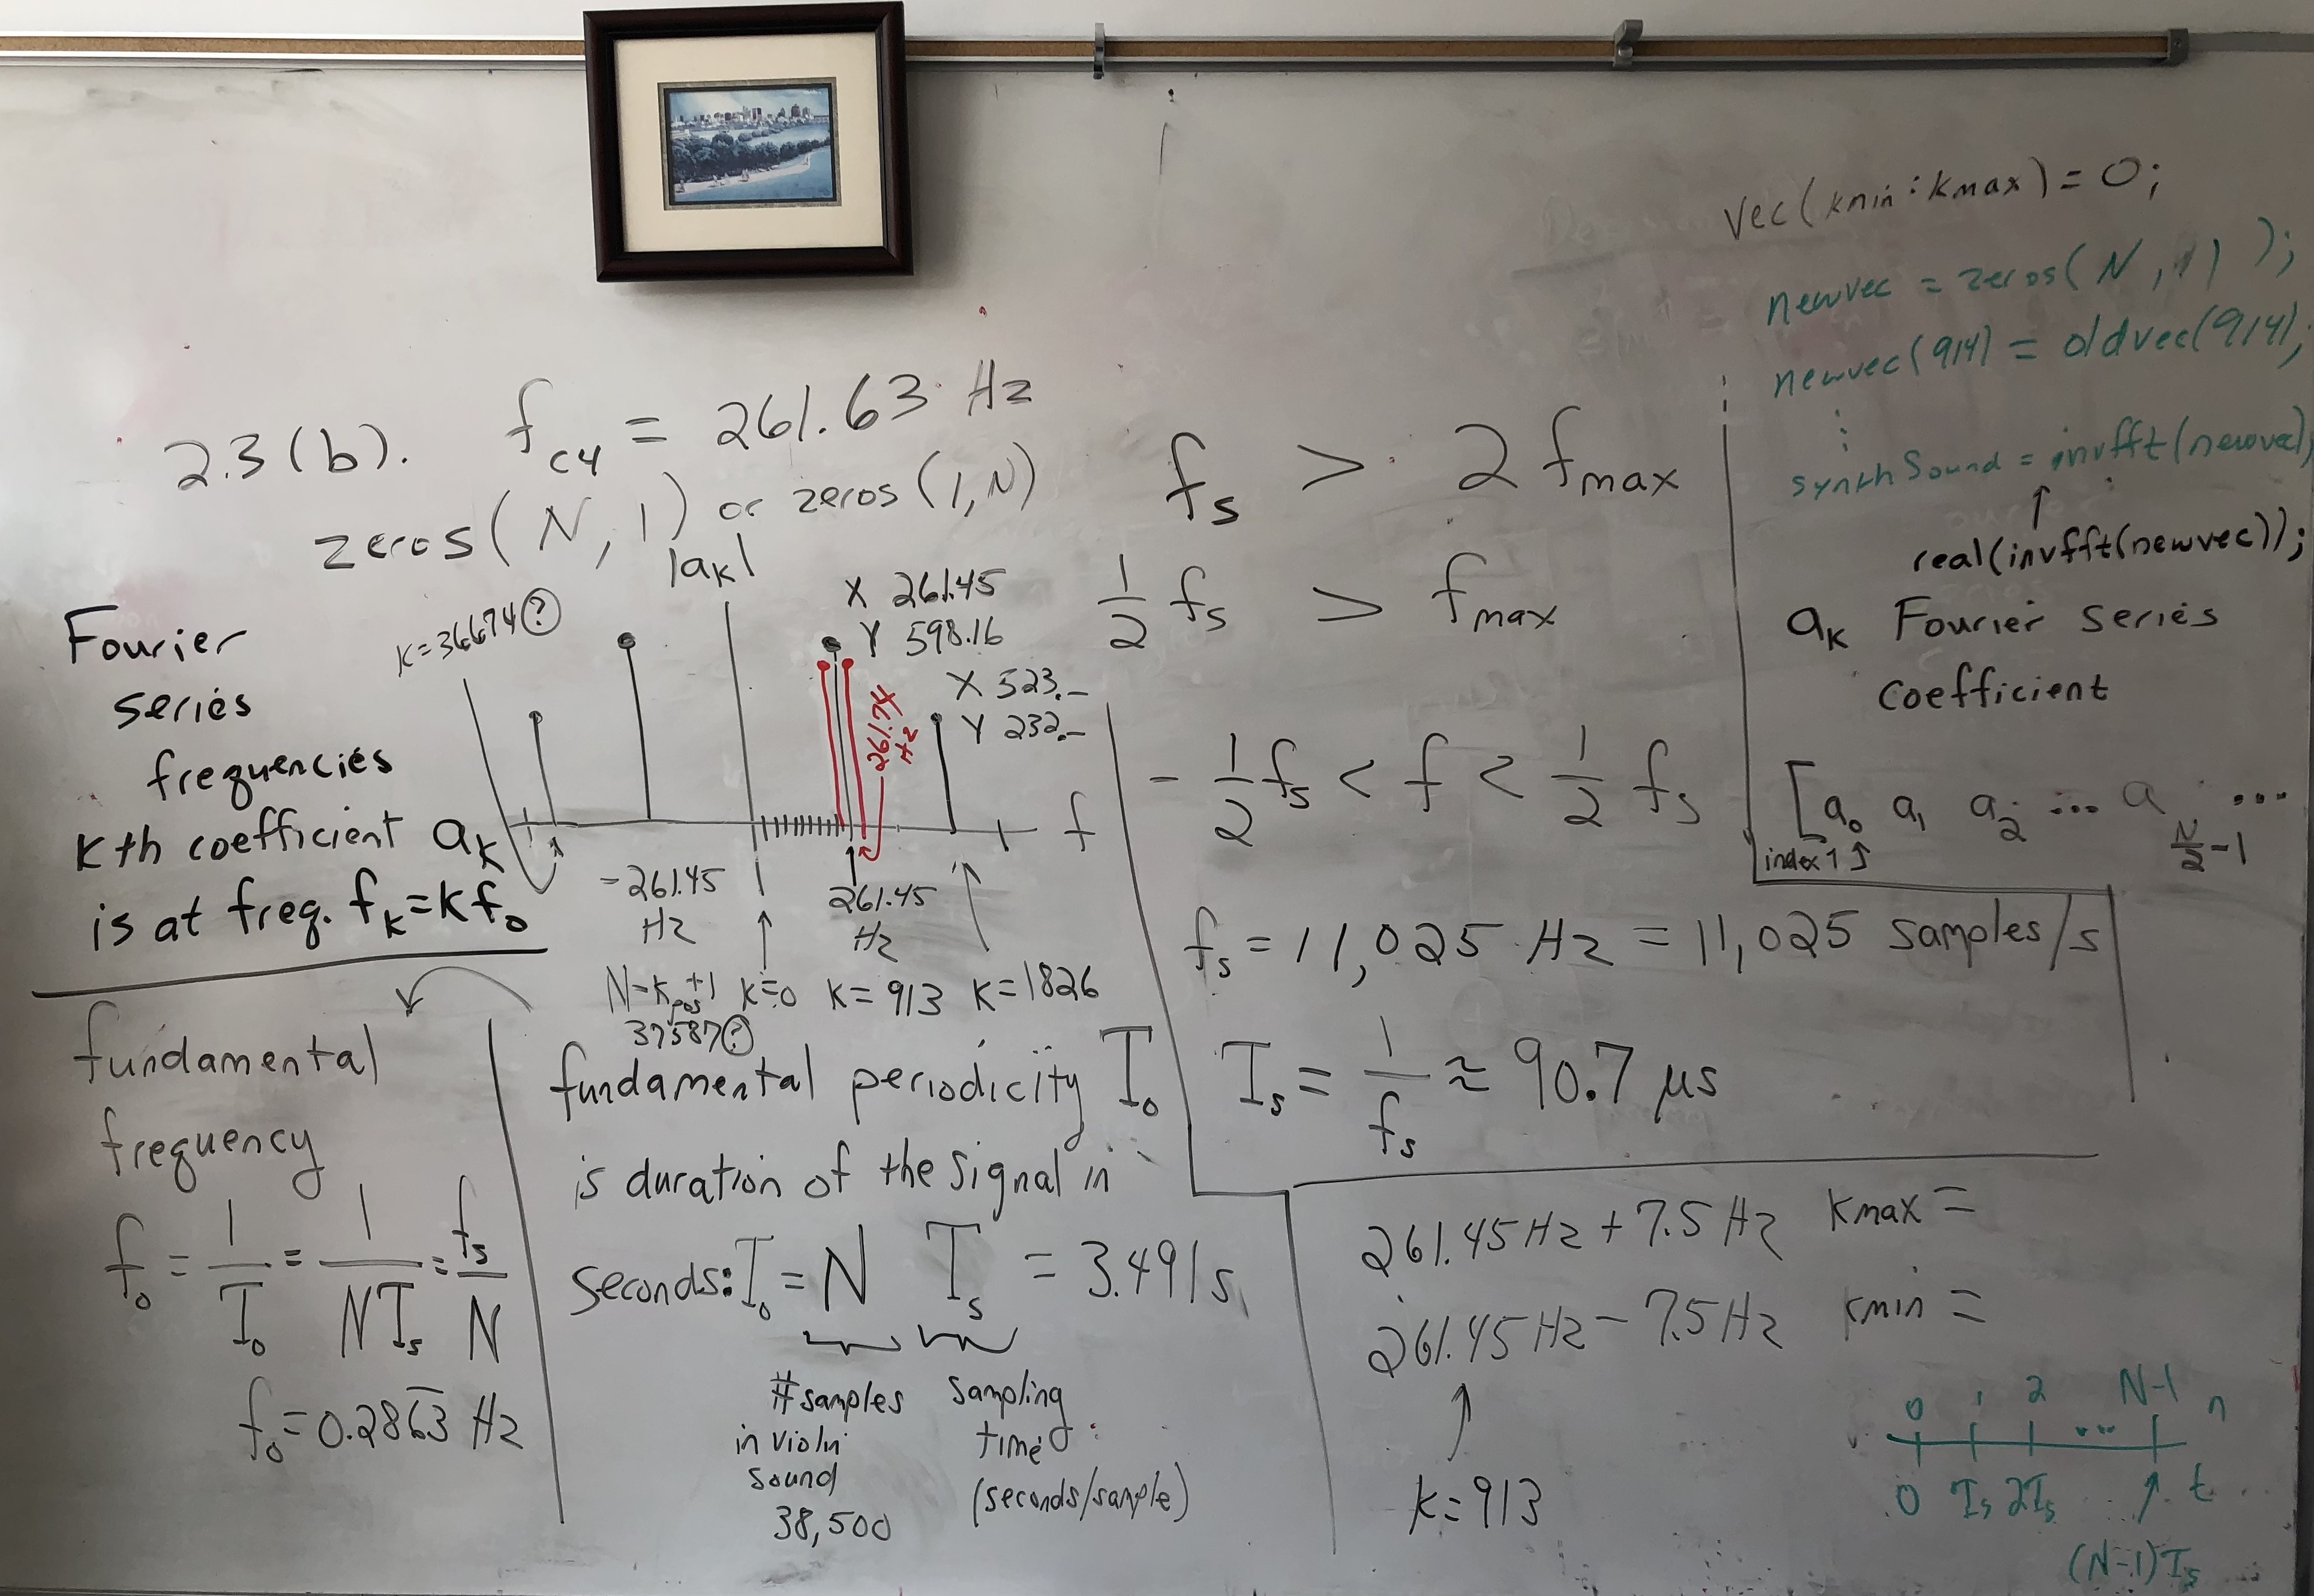 vec(kmin:kmax) = 0;
newvec = zeros(N,1);
newvec(914) = oldvec(914);
⋮
synthSound = invfft(newvec);
↑
real(invfft(newvec));
a_k Fourier series
coefficient
[a_0 a_1 a_2 ... a_{N/2-1} ...
index 1 ↑
2.3(b). f_C4 = 261.63 Hz
zeros(N,1) or zeros(1,N)
|a_k|
k=36674 ?
X 261.45
Y 598.16
X 523.-
Y 232.-
261.74
Hz
f
-261.45
Hz
261.45
Hz
N-k_pos+1 k=0 k=913 k=1826
37587 ?
Fourier
series
frequencies
kth coefficient a_k
is at freq. f_k=kf_0
fundamental
frequency
f_0 = 1/T_0 = 1/NT_s = f_s/N
f_0=0.2863 Hz
fundamental periodicity T_0
is duration of the signal in
seconds: T_0 = N T_s = 3.491 s
#samples
in violin
sound
38,500
sampling
time
(seconds/sample)
f_s > 2 f_max
1/2 f_s > f_max
-1/2 f_s < f < 1/2 f_s
f_s = 11,025 Hz = 11,025 samples/s
T_s = 1/f_s ≈ 90.7 μs
261.45Hz + 7.5Hz kmax =
261.45Hz - 7.5Hz kmin =
↑
k=913
0 1 2 ... N-1 n
0 T_s 2T_s ↑ t
(N-1)T_s